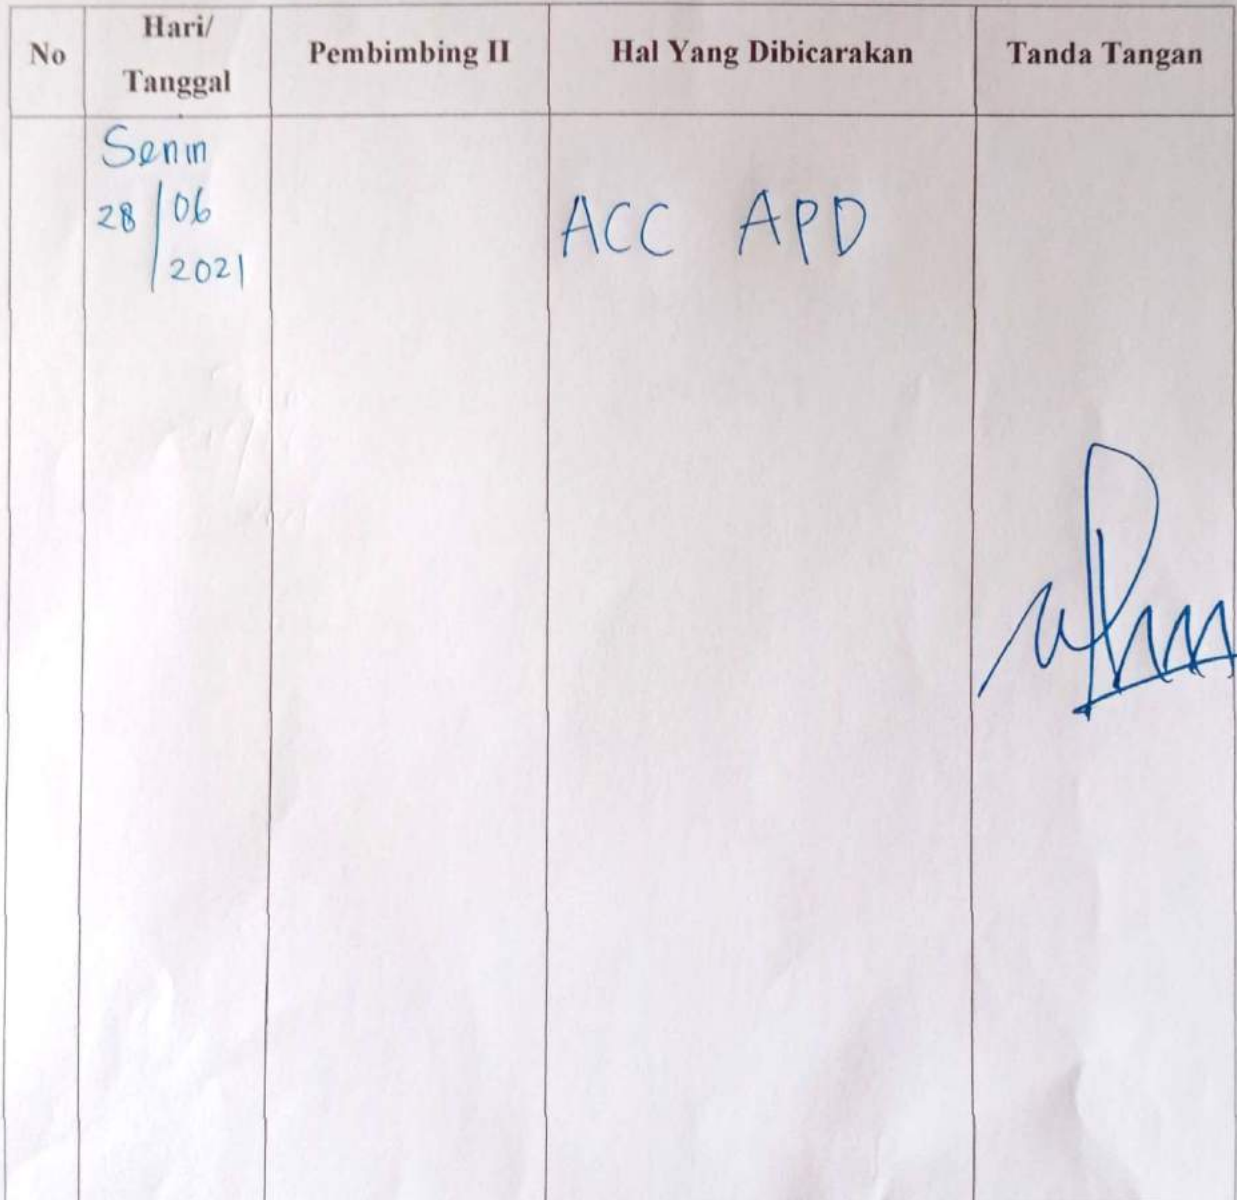 No Hari/ Tanggal Pembimbing II Hal Yang Dibicarakan Tanda Tangan
Senin
28/06
2021
ACC APD